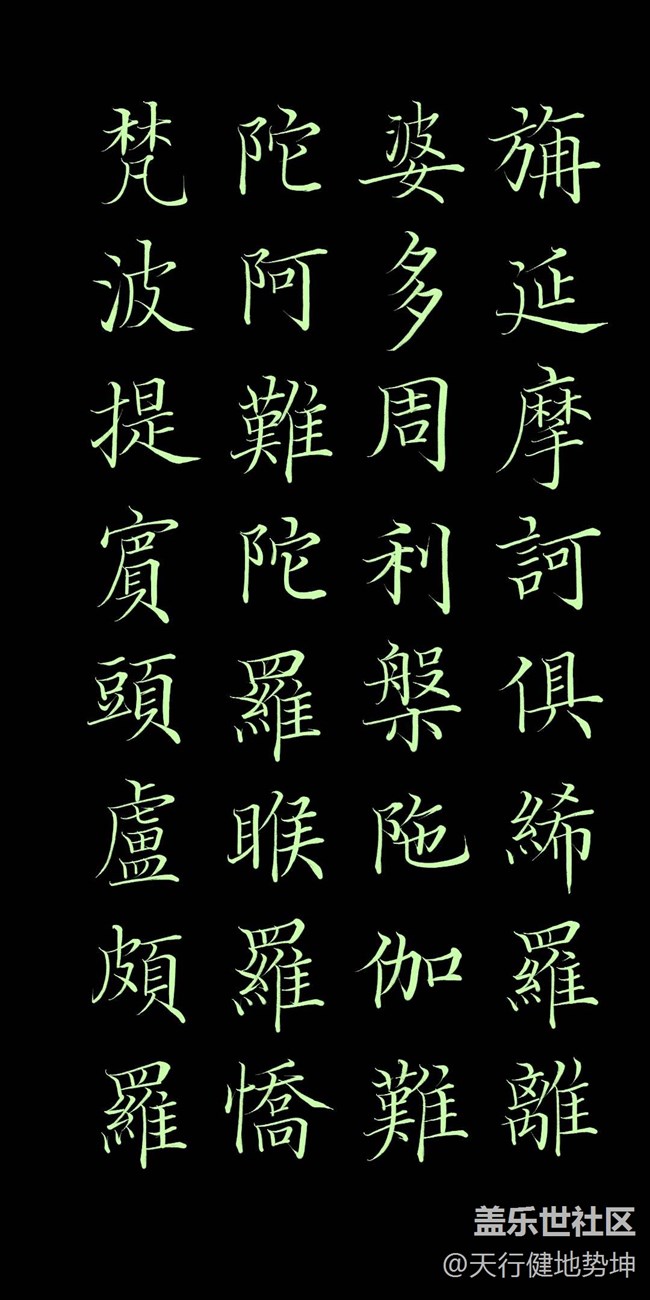 旃延摩訶俱絺羅離
婆多周利槃陁伽難
陀阿難陀羅睺羅憍
梵波提賓頭盧頗羅
盖乐世社区
@天行健地势坤